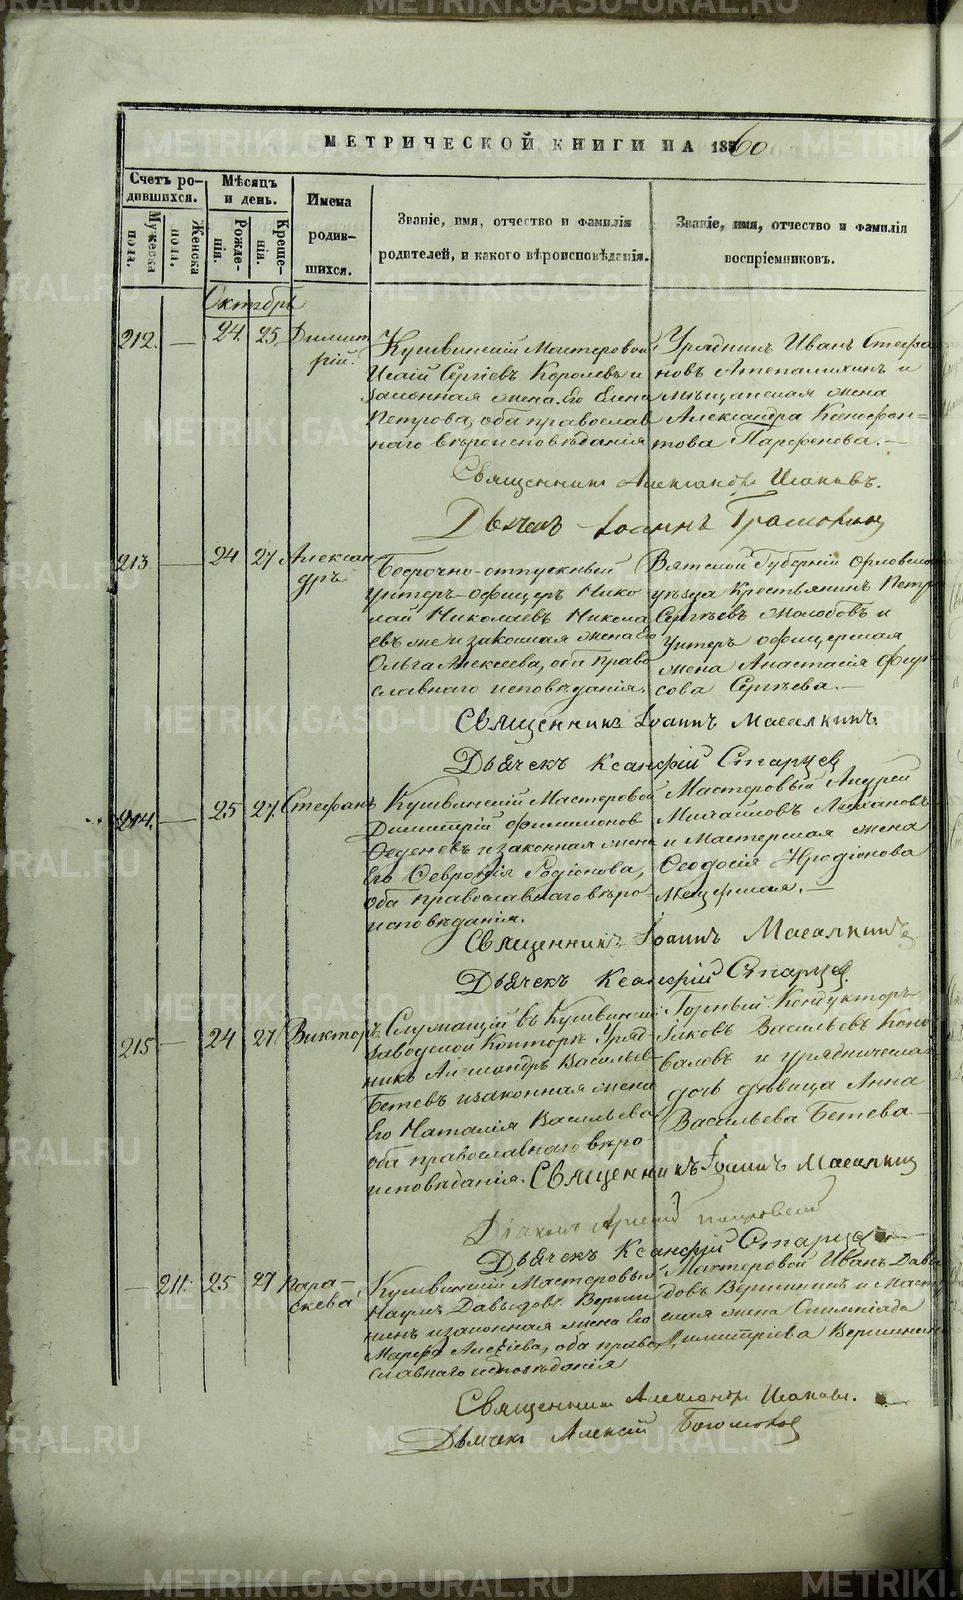 METRIKI.GASO-URAL.RU
МЕТРИЧЕСКОЙ КНИГИ НА 1860
Счетъ ро-
дившихся.
Мужеска
пола.
Женска
пола.
Мѣсяцъ
и день.
Рожде-
нія.
Креще-
нія.
Имена
родив-
шихся.
Званіе, имя, отчество и фамилія
родителей, и какого вѣроисповѣданія.
Званіе, имя, отчество и фамилія
воспріемниковъ.
Октябрь
212. — 24. 25. Димит
рій.
Кушвинскій Мастеровой
Исаій Сергіевъ Королевъ и
законная жена его Елена
Петрова, оба православ
наго вѣроисповѣданія
Урядникъ Иванъ Стефа
новъ и
мѣщанская жена
Александра Ксенофон-
това Парфенова. —
Священникъ Александръ Исаковъ.
Дьячекъ Іоаннъ
213 — 24 27 Алексан
дръ
Безсрочно-отпускный
унтеръ-офицеръ Нико
лай Николаевъ Никола
евъ же и законная жена его
Ольга Алексеева, оба право
славнаго исповѣданія.
Вятской Губерніи Орловскаго
уѣзда Крестьянинъ Петръ
Сергѣевъ Жолобовъ и
Унтеръ офицерская
жена Анастасія Фир
сова Сергѣева. —
Священникъ Іоаннъ Масалкинъ.
Дьячекъ Ксанфій Старцев
214. — 25 27. Стефанъ
Кушвинскій Мастеровой
Димитрій Филимонов
Феденевъ и законная жена
Его Февронія Родіонова,
оба православнаго вѣро-
исповѣданія.
Мастеровый Андрей
Михайловъ Лихановъ
и Мастерская жена
Феодосія Иродіонова
Мещерская. —
Священникъ Іоаннъ Масалкинъ
Дьячекъ Ксанфій Старцев.
215 — 24 27 Викторъ
Служащій въ Кушвинской
заводской Конторѣ Уряд
никъ Александръ Васильев
Бетевъ и законная жена
Его Наталія Васильева
оба православнаго вѣро
исповѣданія.
Горный Кондукторъ
Яковъ Васильевъ Коно
валовъ и урядническая
дочь дѣвица Анна
Васильева Бетева. —
Священникъ Іоаннъ Масалкин
Діаконъ
Дьячекъ Ксанфій Старцев
— 211. 25 27 Пара-
скева
Кушвинскій Мастеровый
Наумъ Давыдовъ Верши
нинъ и законная жена Его
Марфа Алексіева, оба право
славнаго исповѣданія
Мастеровой Иванъ Давы
довъ Вершининъ и Масте
ская жена Олимпіада
Димитріева Вершинин
Священникъ Александръ Исаковъ.
Дьячекъ Алексій Богомолов